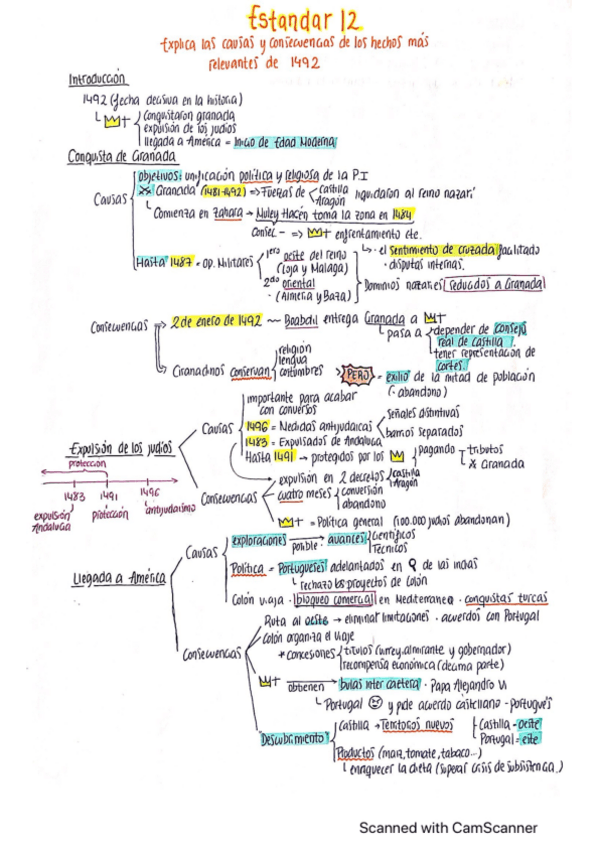 Estandar 12
Explica las causas y consecuencias de los hechos más
relevantes de 1492
Introducción
1492 (fecha decisiva en la historia)
Conquistaron granada
expulsión de los judios
llegada a América = Inicio de Edad Moderna
Conquista de Granada
Causas
objetivos: unificación política y religiosa de la P.I
Granada (1481-1492) => Fuerzas de Castilla Aragón liquidaron al reino nazarí
Comienza en zahara → Muley Hacén toma la zona en 1484
Consec - => enfrentamiento cte.
Hasta 1487 = op. Militares
1ero oeste del reino
(Loja y Malaga)
2do oriental
(Almeria y Baza)
· el sentimiento de cruzada facilitado
· disputas internas.
Dominios nazaries reducidos a Granada
Consecuencias
2 de enero de 1492 ~ Boabdil entrega Granada a
pasa a
depender de consejo
real de Castilla
tener representación de
cortes.
Granadinos conservan
religión
lengua
costumbres
PERO = exilio de la mitad de población
(· abandono)
Expulsión de los judios
Causas
importante para acabar
con conversos
1496 = Medidas antijudaicas
señales distintivas
barrios separados
1483 = Expulsados de Andalucía
Hasta 1491 → protegidos por los
pagando
tributos
Granada
protección
1483 1491 1496
expulsión Andalucía
protección
antijudaismo
Consecuencias
expulsión en 2 decretos
Castilla
Aragón
cuatro meses
conversión
abandono
= Política general (100.000 judios abandonan)
Llegada a América
Causas
exploraciones posible · avances
Científicos
Técnicos
Política = Portugueses adelantados en de las indias
rechazo los proyectos de Colón
Colón viaja · bloqueo comercial en Mediterraneo · conquistas turcas
Consecuencias
Ruta al oeste → eliminar limitaciones · acuerdos con Portugal
Colón organiza el viaje
* concesiones
titulos (virrey, almirante y gobernador)
recompensa económica (decima parte)
obtienen bulas inter caetera · Papa Alejandro VI
Portugal y pide acuerdo castellano - portugués
"Descubrimiento"
Castilla → Territorios nuevos
Castilla - oeste
Portugal = este
Productos (maiz, tomate, tabaco...)
enriquecer la dieta (superar crisis de subsistencia)
Scanned with CamScanner